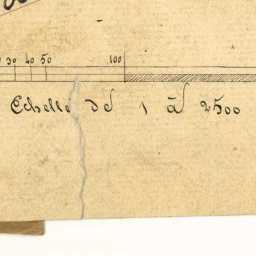 30 40 50 100
Echelle de 1 à 2500